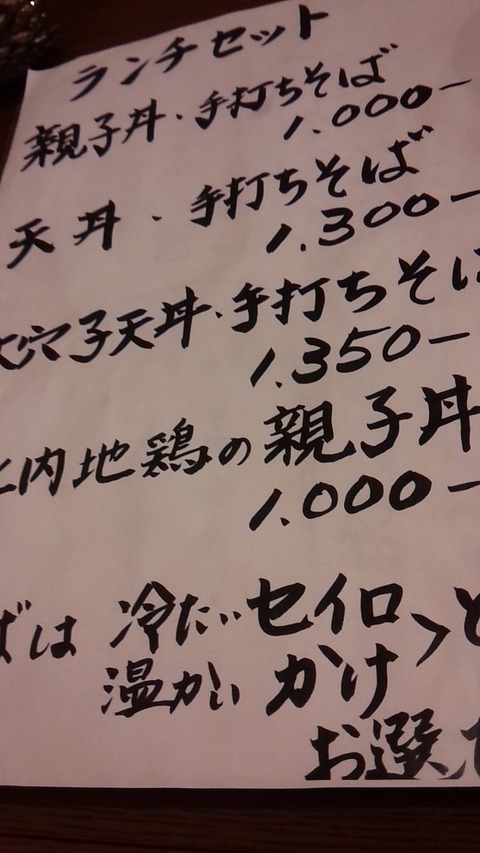 ランチセット
親子丼・手打ちそば
1.000-
天丼・手打ちそば
1.300-
穴子天丼・手打ちそ
1.350-
内地鶏の親子丼
1.000-
ばは 冷たいセイロ
温かい かけ
お選